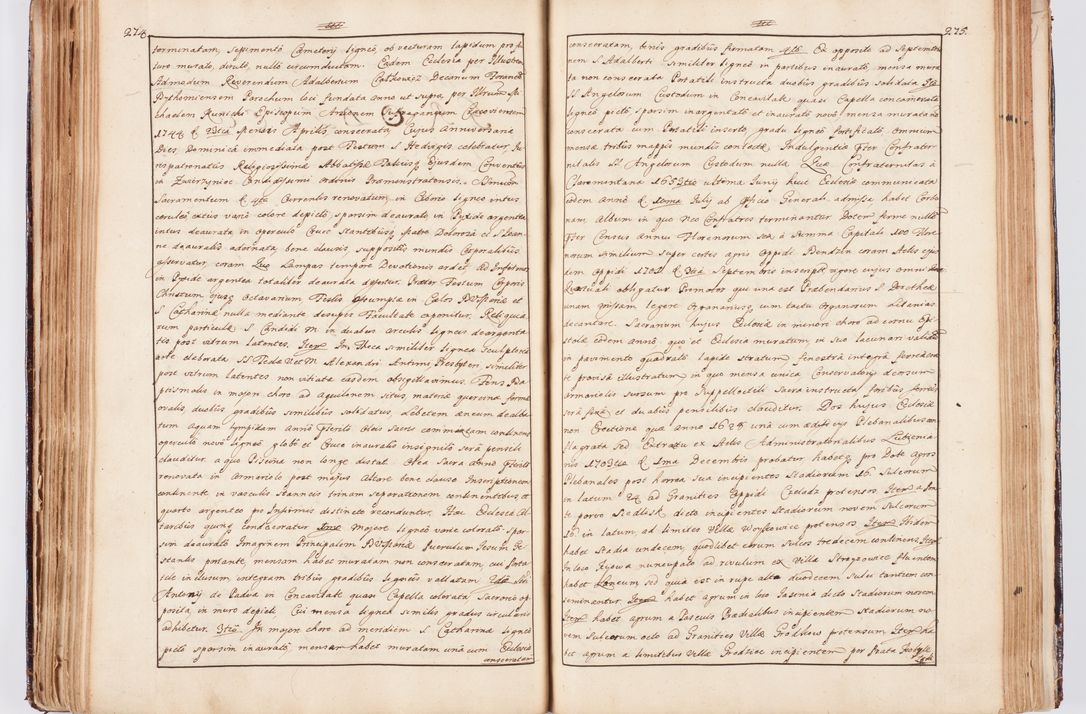 274
terminatam, sepimentô Cæmeterij ligneô, ob vecturam lapidum pro fu
turo muralo, diruti, nullô circumductam. Eadem Ecclesia per Illustrem
Admodum Reverendum Adalbertum Decanum
Bythomiensem Parochum loci fundata anno ut supra, per Illrum Mi
chaelem Kunicki Episcopum Suffraganeum Cracoviensem
1744 d 23tia Mensis Aprilis consecrata, Cujus Anniversaria
Dies Dominica immediata post Festum S Hedvigis celebratur, Ju
rispatronatûs Religiosissimæ Abbatissæ totiusq Ejusdem Conventûs
in Zwierzyniec Candidissimi ordinis Præmonstratensis. Venera
Sacramentum d 4ta Currentis renovatum, in Ciborio ligneo intus
ceruleo extus variô colore depictô, sparsim deaurato, in Pyxide argentea
intus deaurata in operculo Cruce Stantibusq Matre Dolorosa et S Ioan
ne deauratis adornata, bene clausis, suppositis mundis Corporalibus
asservatur, coram Quo Lampas tempore Devotionis ardet, ad Infirmos
in Pyxide argentea totaliter deaurata defertur. Præter Festum Corporis
Christi ejusq Octavarium Festis Assumptæ in Cælos BVMariæ et
S Catharinæ nullâ mediante desuper Facultate exponitur. Reliquia
rum particulæ S Candidi M in duabus arculis ligneis deargenta
tis post vitrum latentes. Item In Theca similiter lignea sculptoria
arte elaborata SS Fedæ Vet M Alexandri Antimi Presbyteri similiter
post vitrum latentes non vitiatæ easdem obsigillavimus. Fons Ba
ptismalis in majori choro ad aquilonem situs, materiæ quercinæ formæ
ovalis duobus gradibus similibus solidatus, Lebetem æneum dealba
tum aquam lympidam annô Præteriti Oleis Sacris commixtam continens
operculô novô ligneô globô et Cruce inauratis insignitô serâ pensili
clauditur, a quo Piscina non longe distat. Olea Sacra annô Præteriti
renovata in Armariolo post majus Altare bene clauso Inscriptionem
continente, in vasculis stanneis trinam separationem continentibus et
quarto argenteo pro Infirmis distincte reconduntur. Hæc Ecclesia Al
taribus quinq condecoratur 1mo Majori ligneô variè coloratô spar
sim deauratô Imaginem Principalem BVMariæ puerulum Iesum Ge
stantis portante, mensam habet muratam non consecratam, cui Porta
tile in illusum integram tribus gradibus ligneis vallatam. 2do Sti
Antonij de Padua in Concavitate quasi Capella colorata Sacrario op
posita, in muro depicti, Cui mensa lignea similis gradus circularis
adhibetur. 3tiô. In majori choro ad meridiem S Catharinæ ligneô
pictô sparsim inauratô, mensam habet muratam unâ cum Ecclesia
consecratam
275
consecratam, binis gradibus firmatam 4tô Ex opposito ad Septentrio
nem S Adalberti similiter ligneô in partibus inauratô, mensa mura
ta non consecrata Portatili instructa duobus gradibus solidata 5tô
SS Angelorum Custodum in Concavitate quasi Capella concamerata
ligneô pictô sparsim inargentatô et inauratô novô mensâ muratâ non
consecratâ cum Portatili insertô, gradu ligneô fortificatô omnium
mensæ tribus mappis mundis contectæ. Indulgentiæ Præter Confrater
nitatis SS Angelorum Custodum nullæ Quæ Confraternitas à
Claromontana 1653tio ultima Iunij huic Ecclesiæ communicata
eodem annô d 10ma Iulij ab Officio Generali admissa habet Corbo
nam, Album in quo Neo Confratres terminantur Dotem forme nullam
Præter Census annui Florenorum sex à Summa Capitali 100 Flore
norum similium super certis agris Oppidi Bendzin coram Actis ejus
dem Oppidi 1702 d 9na Septembris inscriptæ vigore cujus omni die
obligatur Promotor qui una est Præbendarius S Dorotheæ
unam missam legere Organariusq cum tactu Organorum Litanias
decantare. Sacrarium hujus Ecclesiæ in minore choro ad cornu Epi
stolæ eodem annô, quo et Ecclesia muratum, in suo lacunari validô
in pavimento quadratô lapide stratum fenestrâ integrâ ferreâ cra
te provisâ illustratum in quo mensa unica Conservatoriis deorsum
Armariolis sursum pro Suppellectili Sacra instructa foribus ferreis
serâ fixâ et duabus pensilibus clauditur. Dos hujus Ecclesiæ
non Erectione quæ anno 1628 unâ cum ædificijs Plebanalibus con
flagrata sed Extractu ex Actis Administratorialibus
sis 1703tio d 1ma Decembris probatur habetq pro Dote Agros
Plebanales post horrea sua incipientes Stadiorum 16 Sulcorum
in latum 24 ad Granities Oppidi Czeladz protensos. Item a fon
te parvo Siedlisk dicto incipientes Stadiorum novem Sulcorum
16 in latum, ad limites Villæ Woykowice protensos Item Ibidem
habet Stadia undecem, quodlibet eorum Sulcos tredecem continens, Item
In loco Kijowa nuncupato ad rivulum ex Villa Strzyżowice fluentem
habet Laneum sed quia est in rupe alta duodecem Sulci tantum con
seminantur. Item habet agrum in loco Jasenia dicto Stadiorum novem.
Item habet agrum a Pascuis Prædialibus incipientem Stadiorum no
vem Sulcorum octo ad Granities Villæ Grodkow protensum Item ha
bet agrum a limitibus Villæ Grodziec incipientem per Prata